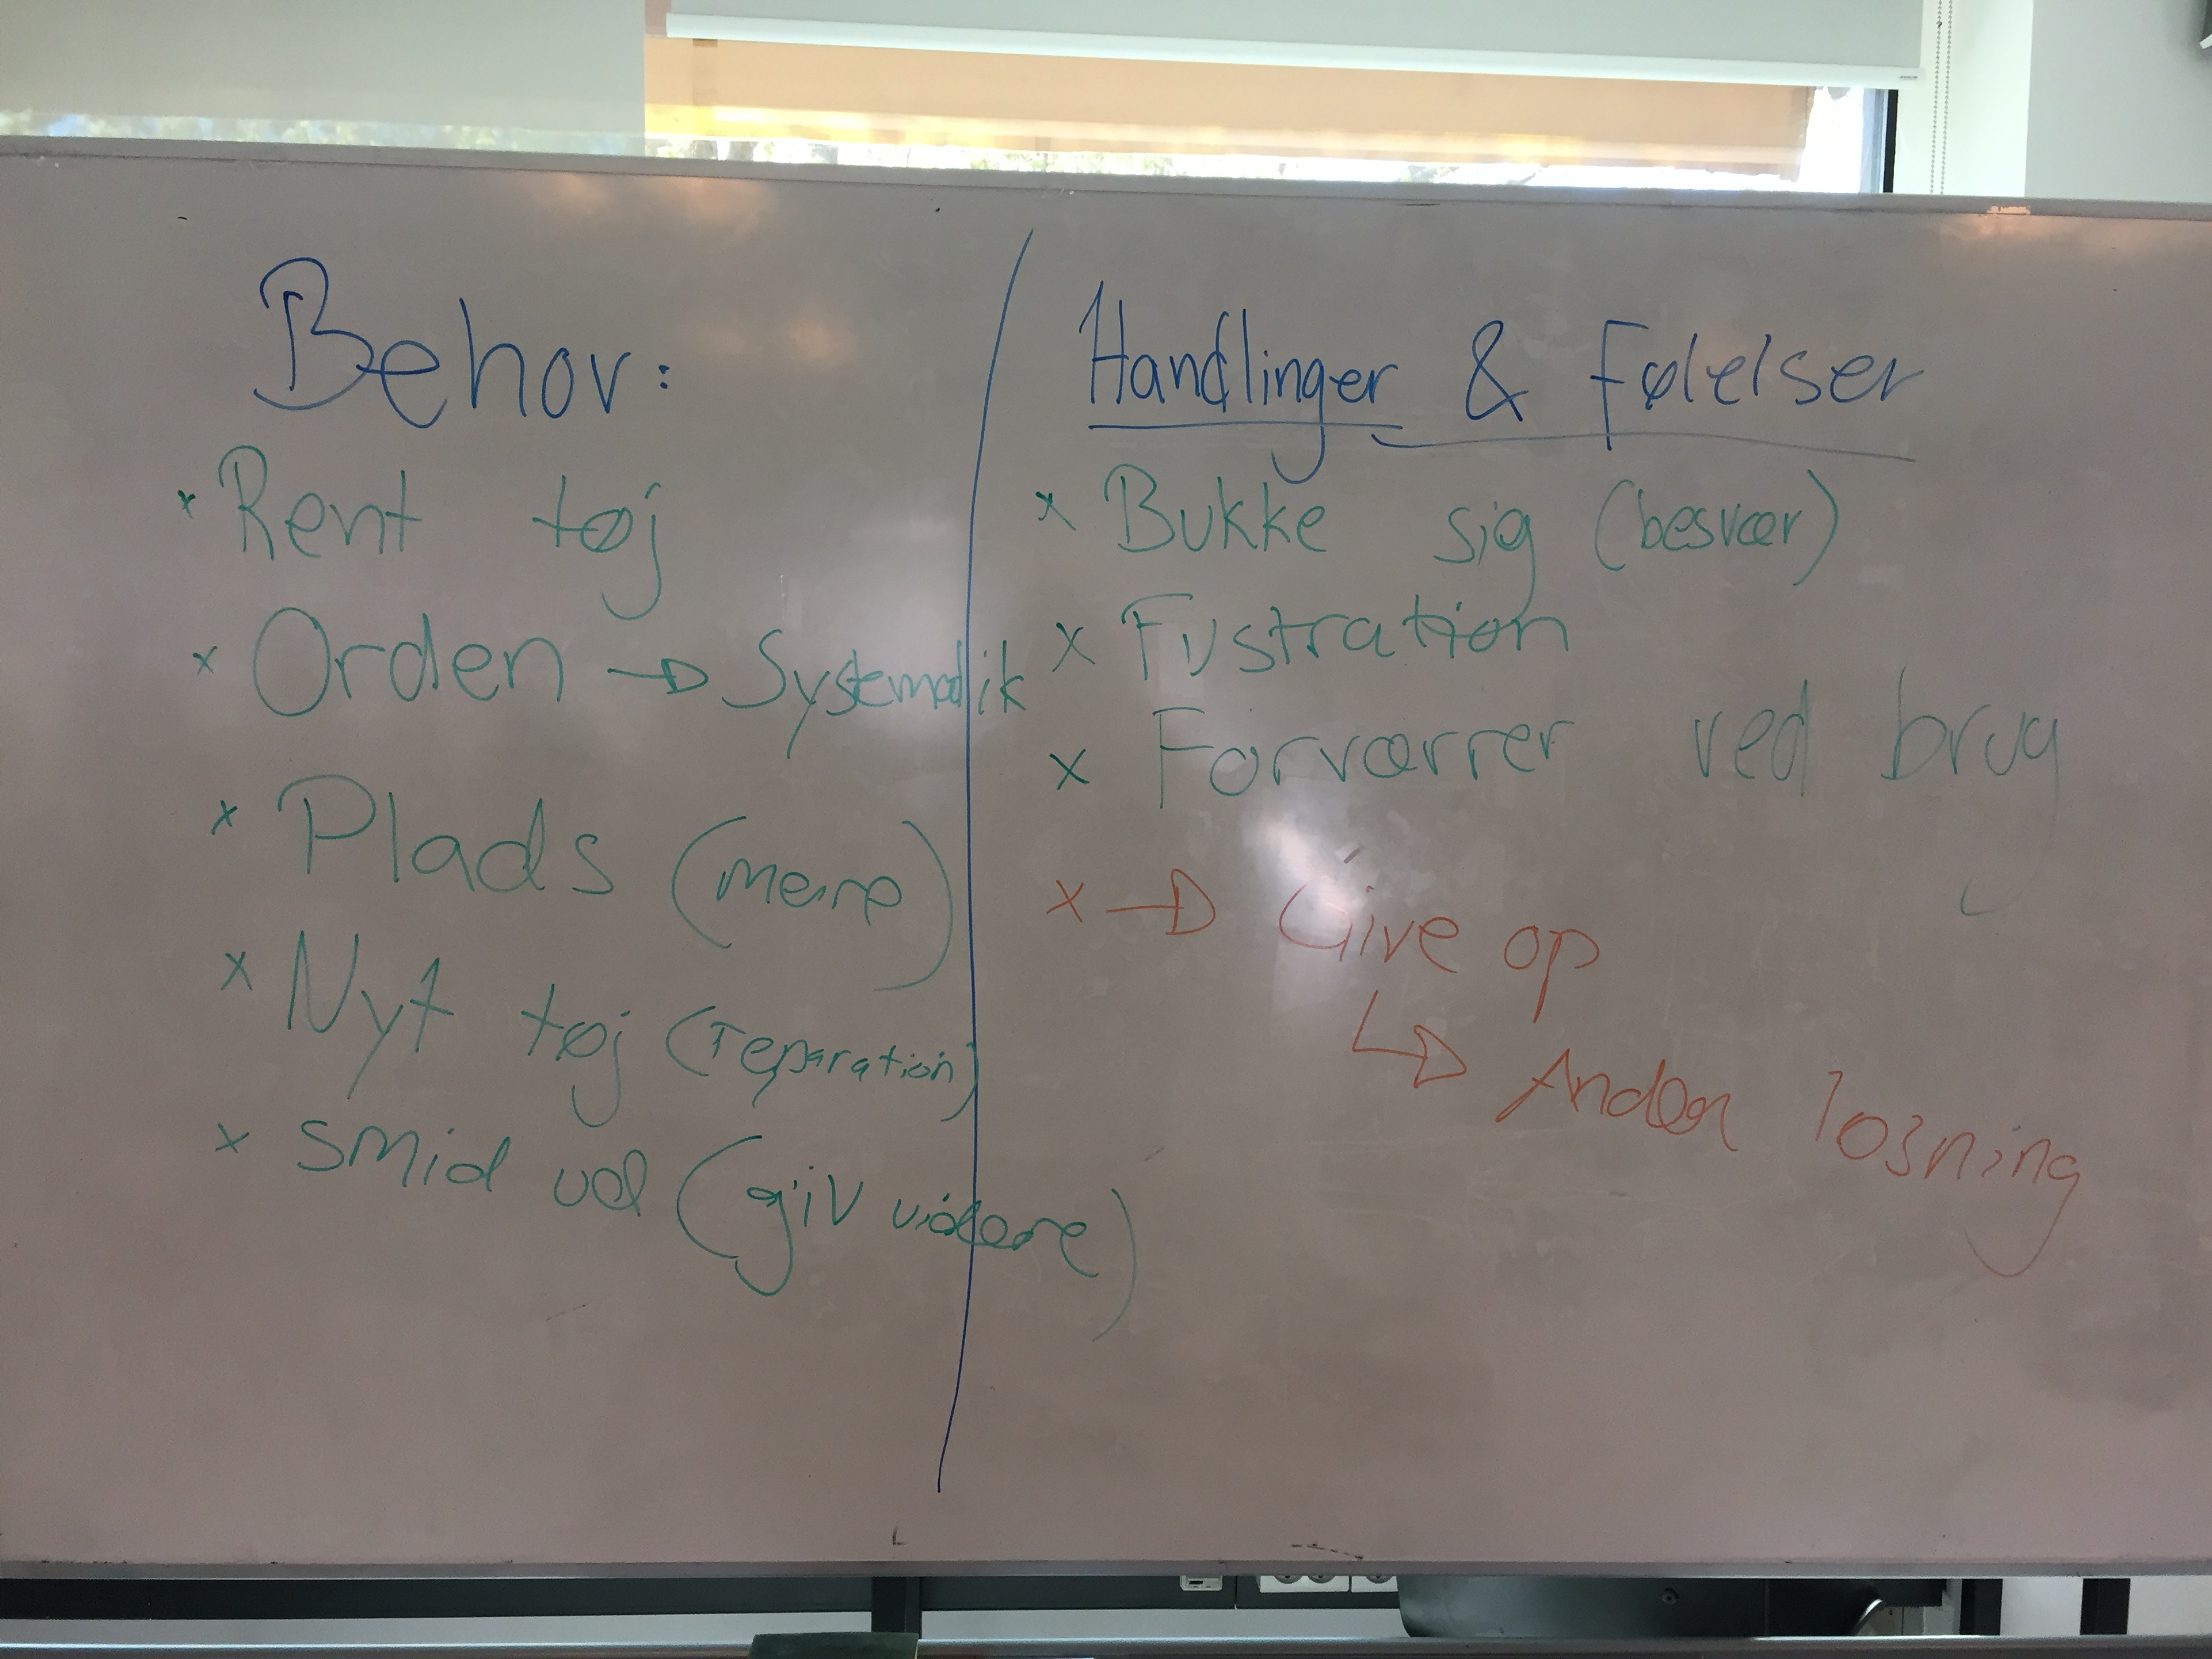 Behov:
x Rent tøj
x Orden → Systematik
x Plads (mere)
x Nyt tøj (reparation)
x smid ud (giv videre)
Handlinger & Følelser
x Bukke sig (besvær)
x Frustration
x Forværrer ved brug
x → Give op
↳ Anden løsning